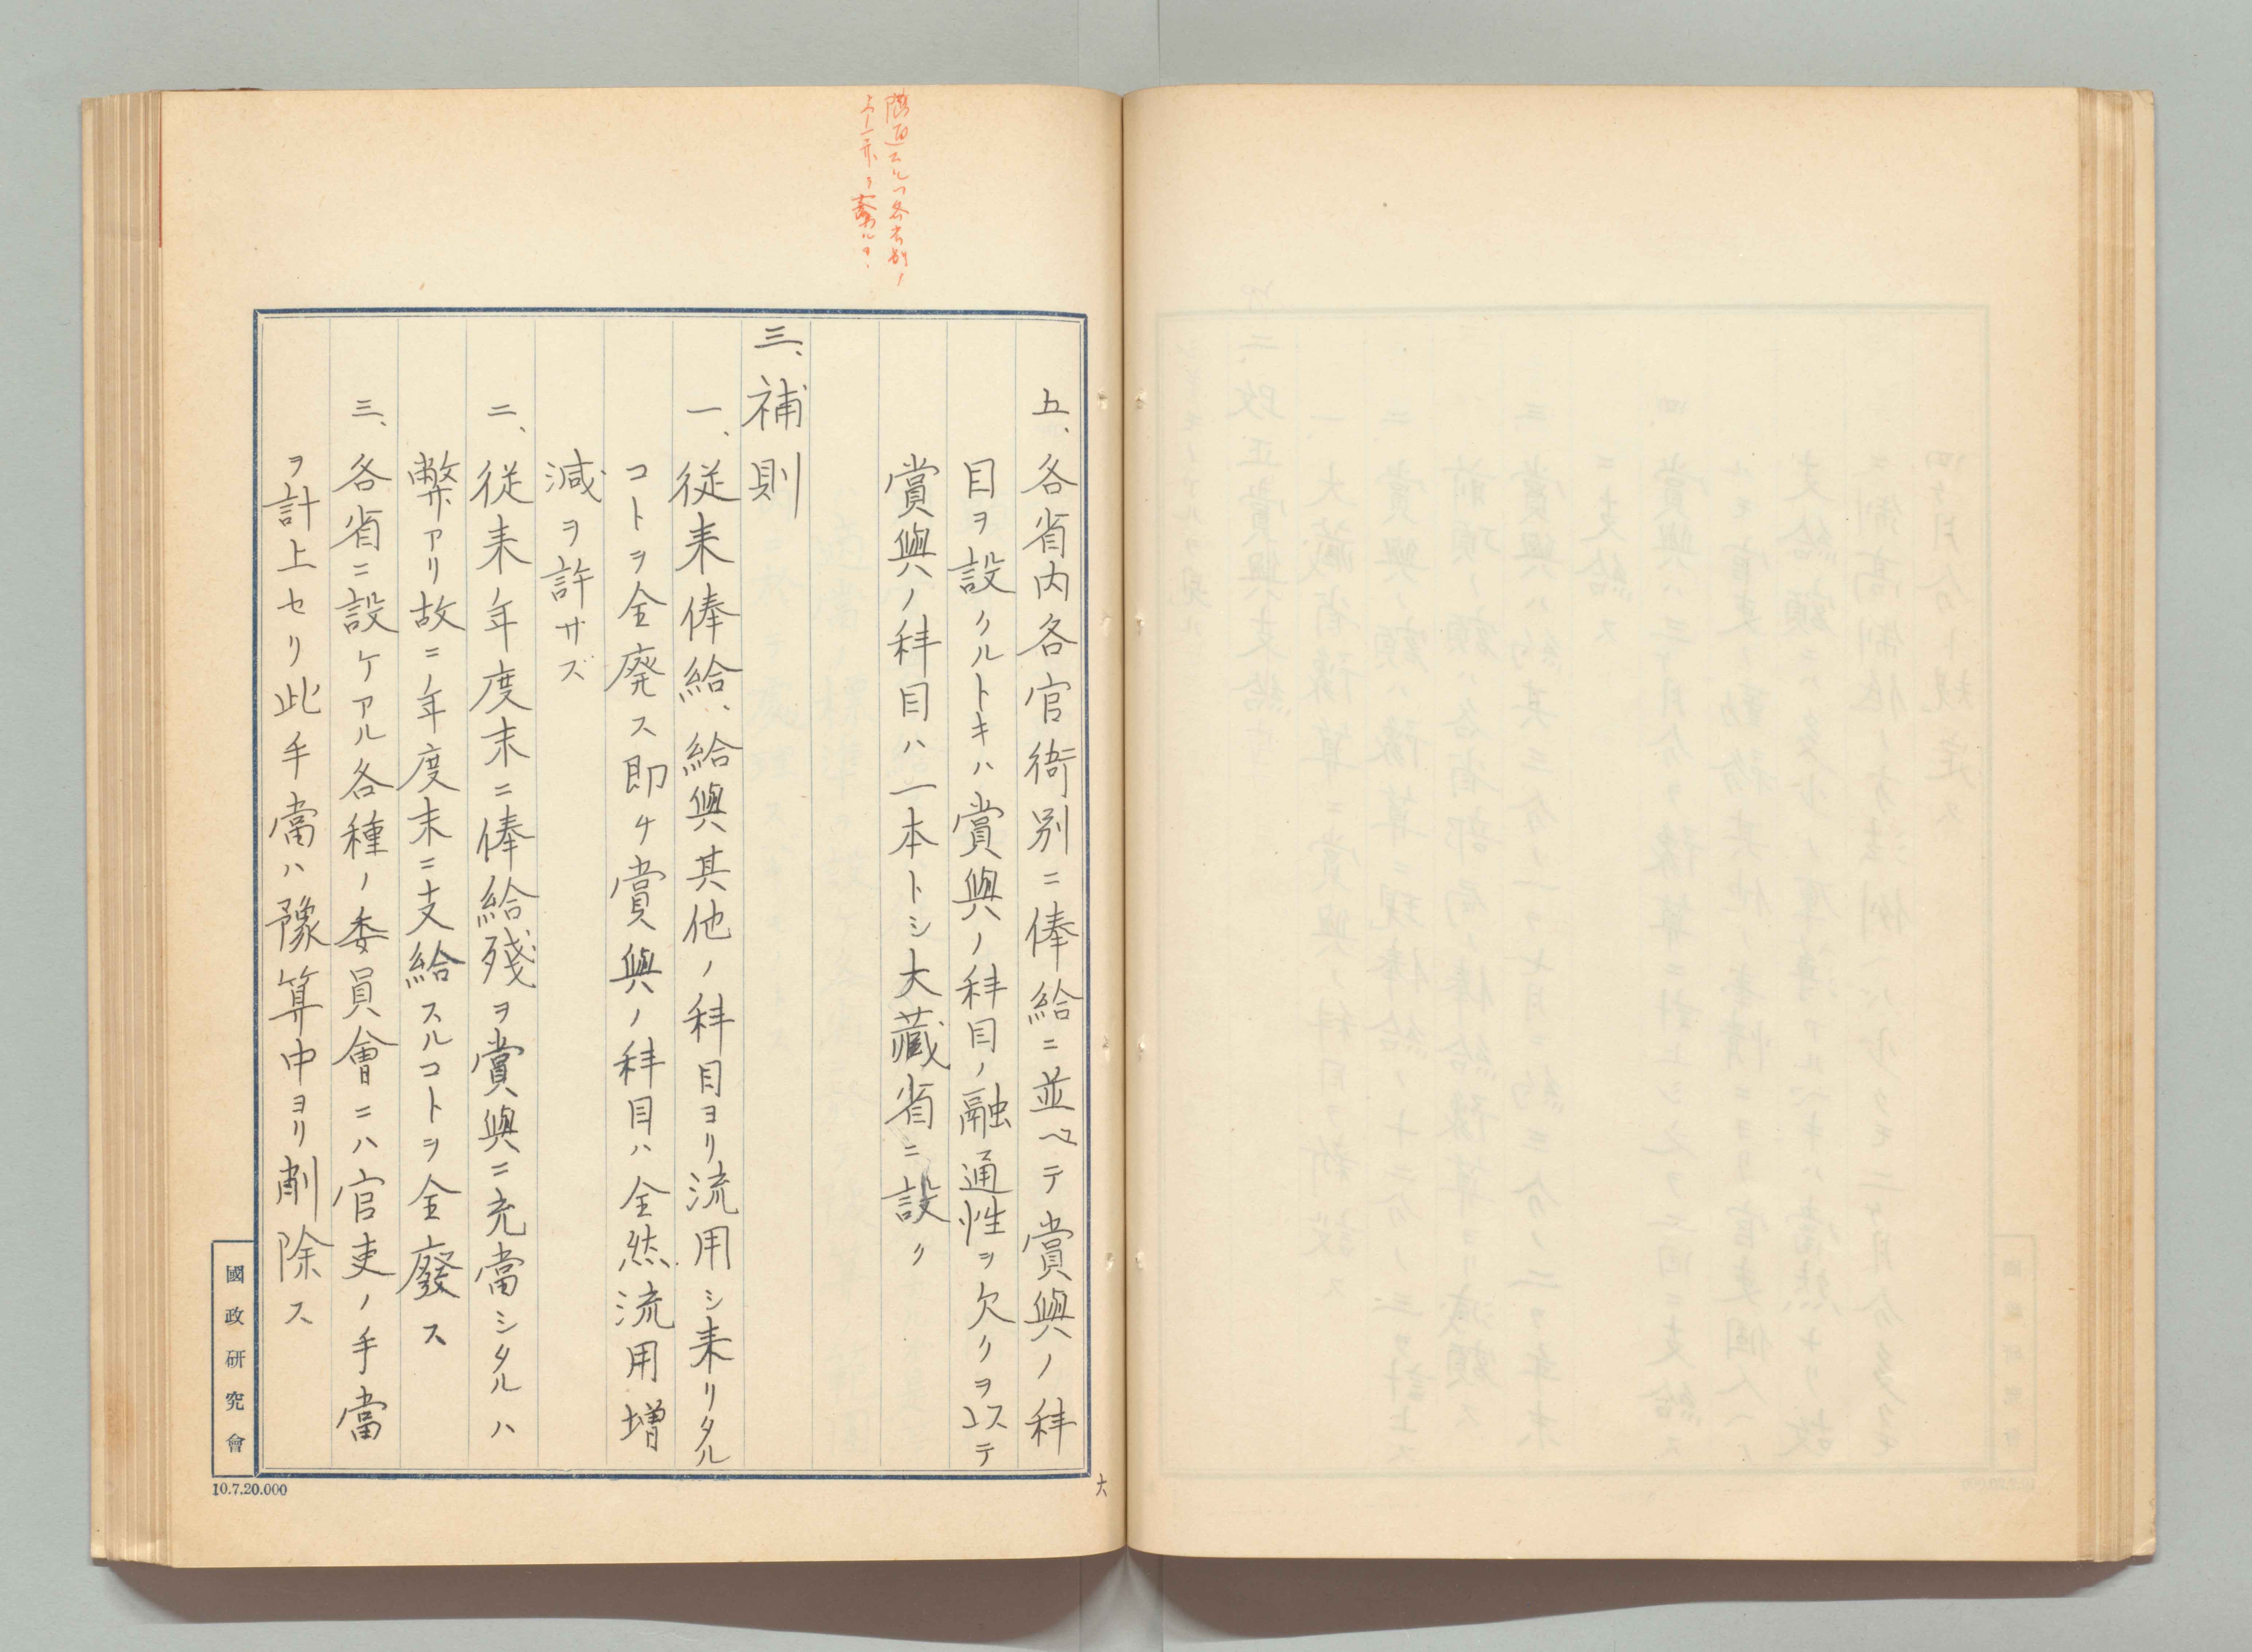 五、各省内各官衙別ニ俸給ニ並ベテ賞與ノ科
目ヲ設クルトキハ賞與ノ科目ノ融通性ヲ欠クヲ以テ
賞與ノ科目ハ一本トシ大藏省ニ設ク
三、補則
一、従来俸給、給與其他ノ科目ヨリ流用シ来リタル
コトヲ全廃ス即チ賞與ノ科目ハ全然流用増
減ヲ許サズ
二、従来ノ年度末ニ俸給残ヲ賞與ニ充當シタルハ
弊アリ故ニノ年度末ニ支給スルコトヲ全廢ス
三、各省ニ設ケアル各種ノ委員會ニハ官吏ノ手當
ヲ計上セリ此手當ハ豫算中ヨリ削除ス
國政研究會
10.7.20.000
六